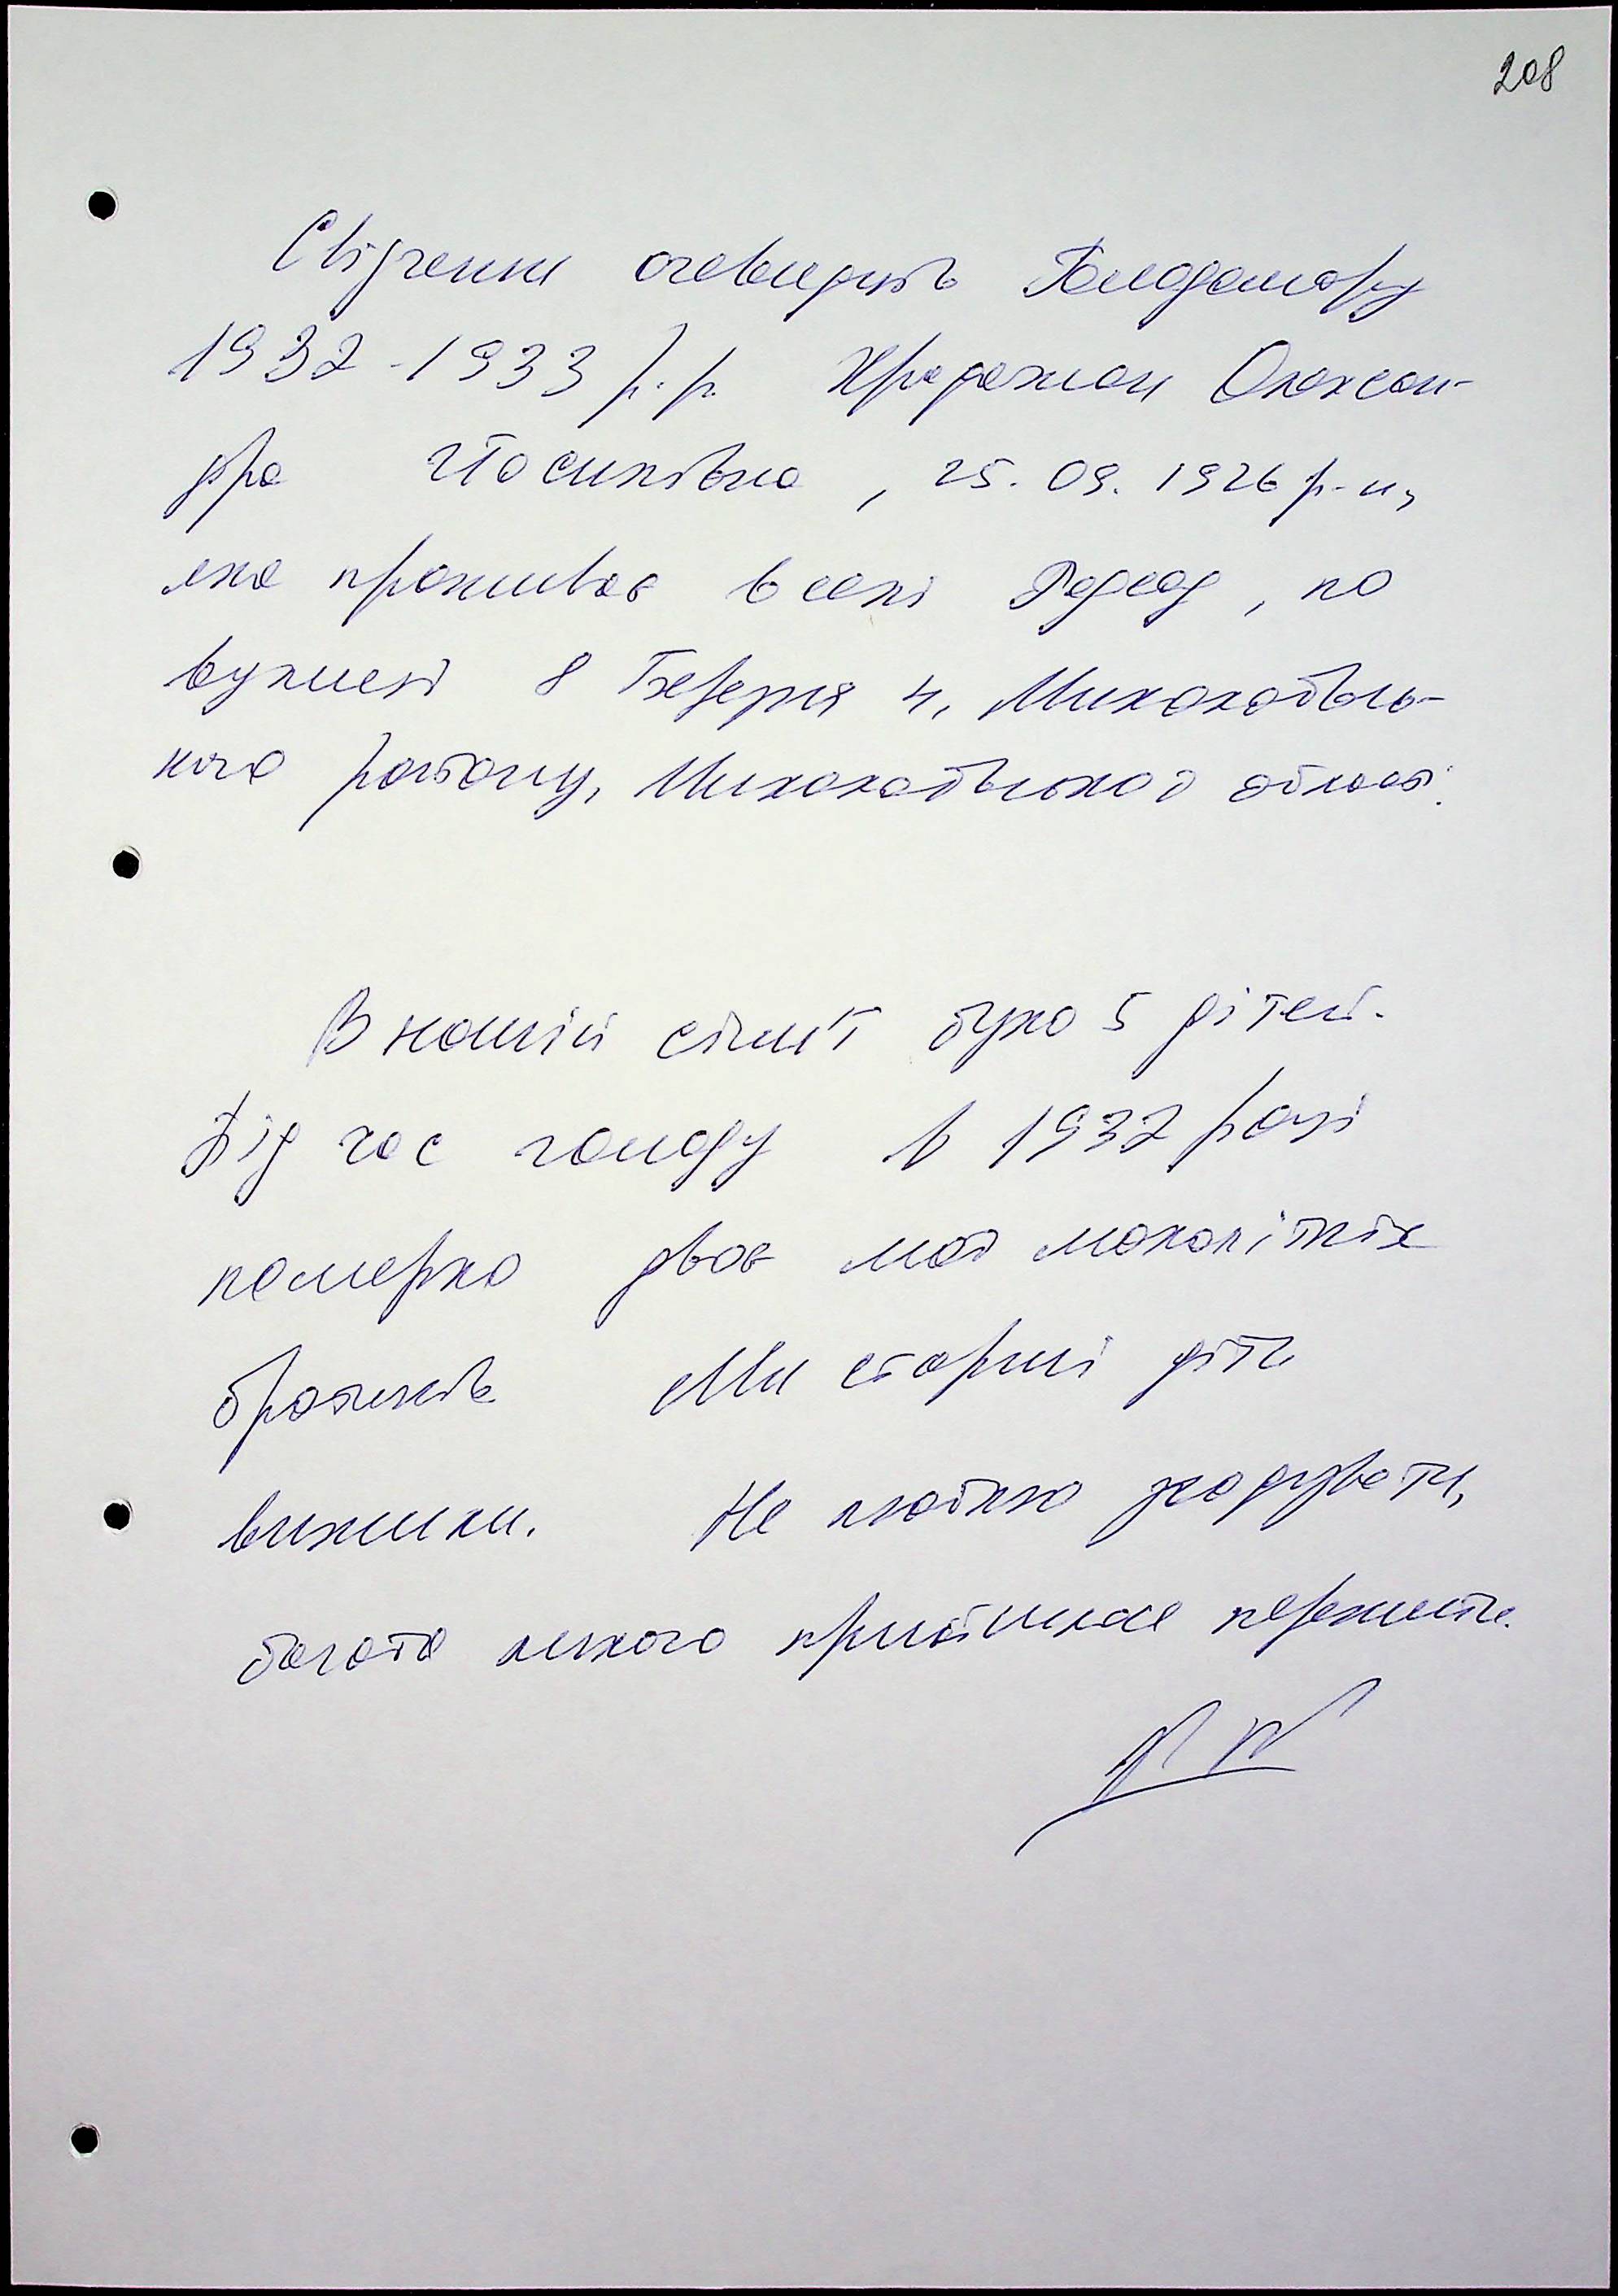 208
Свідчення очевидців Голодомору
1932-1933 р.р. Олексан-
дра Йосипівна, 25.09.1926 р.н,
яка проживає в селі Радсад, по
вулиці 8 Березня 4, Миколаївсь-
кого району, Миколаївської області.
В нашій сім'ї було 5 дітей.
Під час голоду в 1932 році
померло двоє моїх малолітніх
братиків Ми старші діти
вижили. Не люблю згадувати,
багато лихого прийшлося пережити.